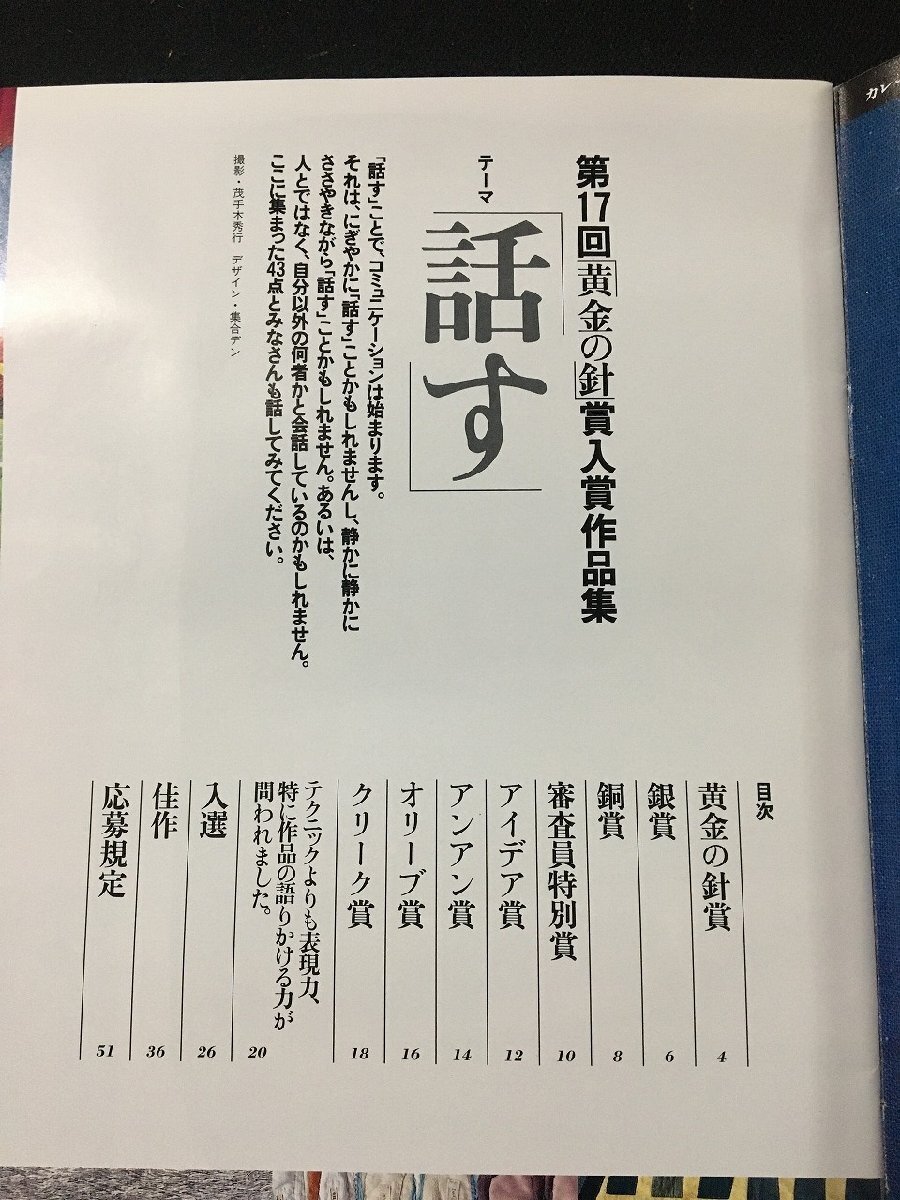 第17回「黄金の針」賞入賞作品集
テーマ
「話す」
「話す」ことで、コミュニケーションは始まります。
それは、にぎやかに「話す」ことかもしれませんし、静かに静かに
ささやきながら「話す」ことかもしれません。あるいは、
人とではなく、自分以外の何者かと会話しているのかもしれません。
ここに集まった43点とみなさんも話してみてください。
撮影・茂手木秀行 デザイン・集合デン
目次
黄金の針賞 4
銀賞 6
銅賞 8
審査員特別賞 10
アイデア賞 12
アンアン賞 14
オリーブ賞 16
クリーク賞 18
テクニックよりも表現力、
特に作品の語りかける力が
問われました。 20
入選 26
佳作 36
応募規定 51
カレ